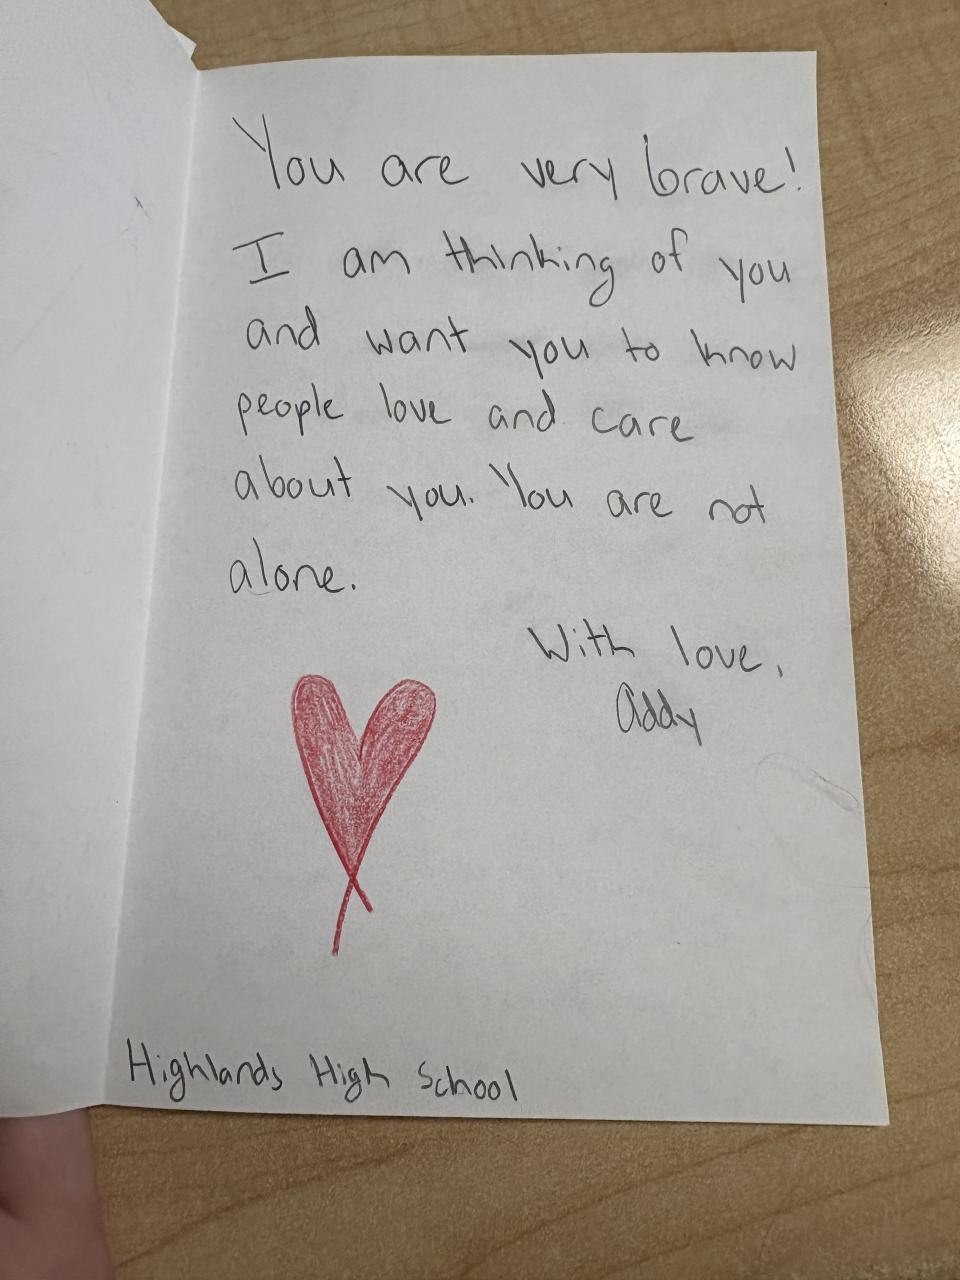 You are very brave!
I am thinking of you
and want you to know
people love and care
about you. You are not
alone.
With love,
Addy
Highlands High School